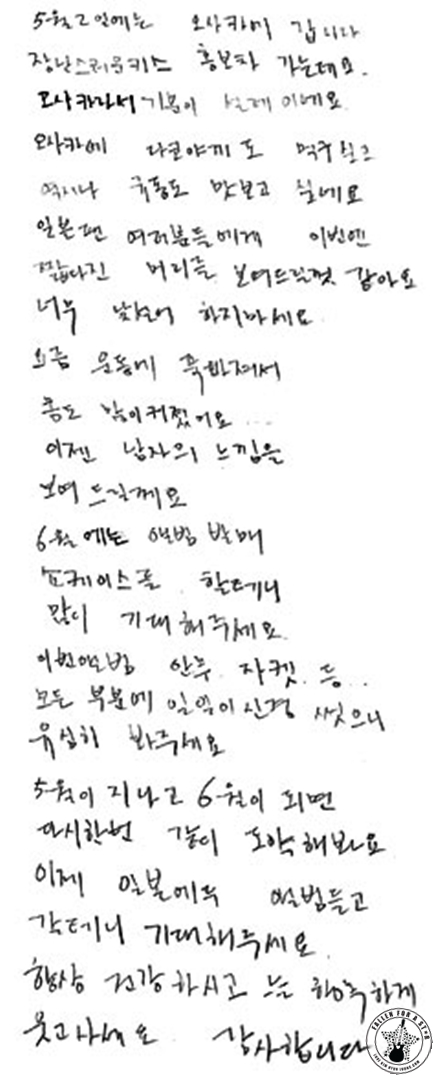 5월 2일에는 오사카에 갑니다
장난스러운키스 홍보차 가는데요.
오사카라서 기분이 설레이네요.
오사카에 다코야끼도 먹구 싶고
역시나 우동도 맛보고 싶네요
일본팬 여러분들에게 이번엔
짧다진 머리를 보여드릴껏 같아요
너무 낯설어 하지마세요.
요즘 운동에 푹빠져서
몸도 많이 커졌어요...
이젠 남자의 느낌을
보여 드릴께요
6월에는 앨범 발매
쇼케이스를 할테니
많이 기대해주세요.
이번앨범 안무. 자켓. 등...
모든 부분에 일일이 신경 썼으니
유심히 봐주세요
5월이 지나고 6월이 되면
다시한번 같이 도약해봐요
이제 일본에두 앨범들고
갈테니 기대해주세요.
항상 건강하시고 늘 행복하게
웃고사세요 감사합니다
FALLEN FOR A STAR